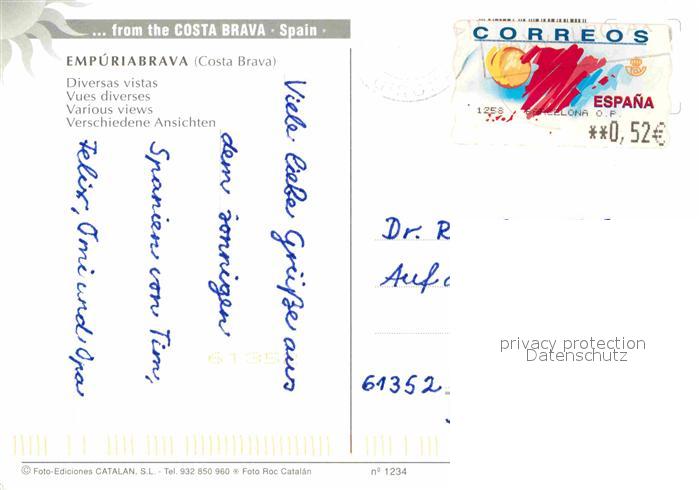 ... from the COSTA BRAVA · Spain ·
EMPÚRIABRAVA (Costa Brava)
Diversas vistas
Vues diverses
Various views
Verschiedene Ansichten
Viele liebe Grüße aus
dem sonnigen
Spanien von Tim,
Felix, Omi und Opa
CORREOS
ESPAÑA
1258 BARCELONA O.P.
**0,52€
Dr. R
Auf d
privacy protection
Datenschutz
61352
61352
© Foto-Ediciones CATALAN, S.L. - Tel. 932 850 960 ® Foto Roc Catalán
nº 1234